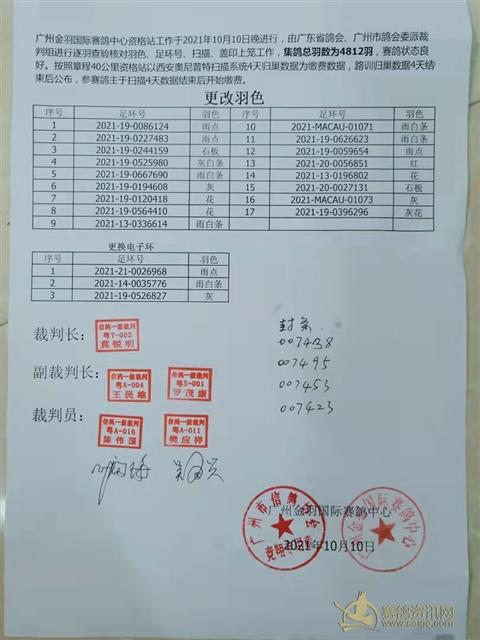 广州金羽国际赛鸽中心资格站工作于2021年10月10日晚进行，由广东省鸽会、广州市鸽会委派裁
判组进行逐羽查验核对羽色、足环号、扫描、盖印上笼工作，集鸽总羽数为4812羽，赛鸽状态良
好。按照章程40公里资格站以西安奥尼普特扫描系统4天归巢数据为缴费数据，路训归巢数据4天结
束后公布，参赛鸽主于扫描4天数据结束后开始缴费。
更改羽色
序号 足环号 羽色 序号 足环号 羽色
1 2021-19-0086124 雨点 10 2021-MACAU-01071 雨白条
2 2021-19-0227483 雨点 11 2021-19-0626623 雨白条
3 2021-19-0244159 石板 12 2021-19-0059654 雨点
4 2021-19-0525980 灰白条 13 2021-20-0056851 红
5 2021-19-0667690 雨白条 14 2021-13-0196802 花
6 2021-19-0194608 灰 15 2021-20-0027131 石板
7 2021-19-0120418 花 16 2021-MACAU-01073 灰
8 2021-19-0564410 花 17 2021-19-0396296 灰花
9 2021-13-0336614 雨白条
更换电子环
序号 足环号 羽色
1 2021-21-0026968 雨点
2 2021-14-0035776 雨白条
3 2021-19-0526827 灰
封条
007438
007495
007453
007423
裁判长：
信鸽一级裁判
粤T-002
莫锐明
副裁判长：
信鸽一级裁判
粤A-004
王民雄
信鸽一级裁判
粤S-001
罗茂康
裁判员：
信鸽一级裁判
粤A-016
陈伟国
信鸽一级裁判
粤A-011
樊应祥
广州金羽国际赛鸽中心
广州市信鸽协会
广州金羽国际赛鸽中心
2021年10月10日
赛鸽资讯网
www.saige.com